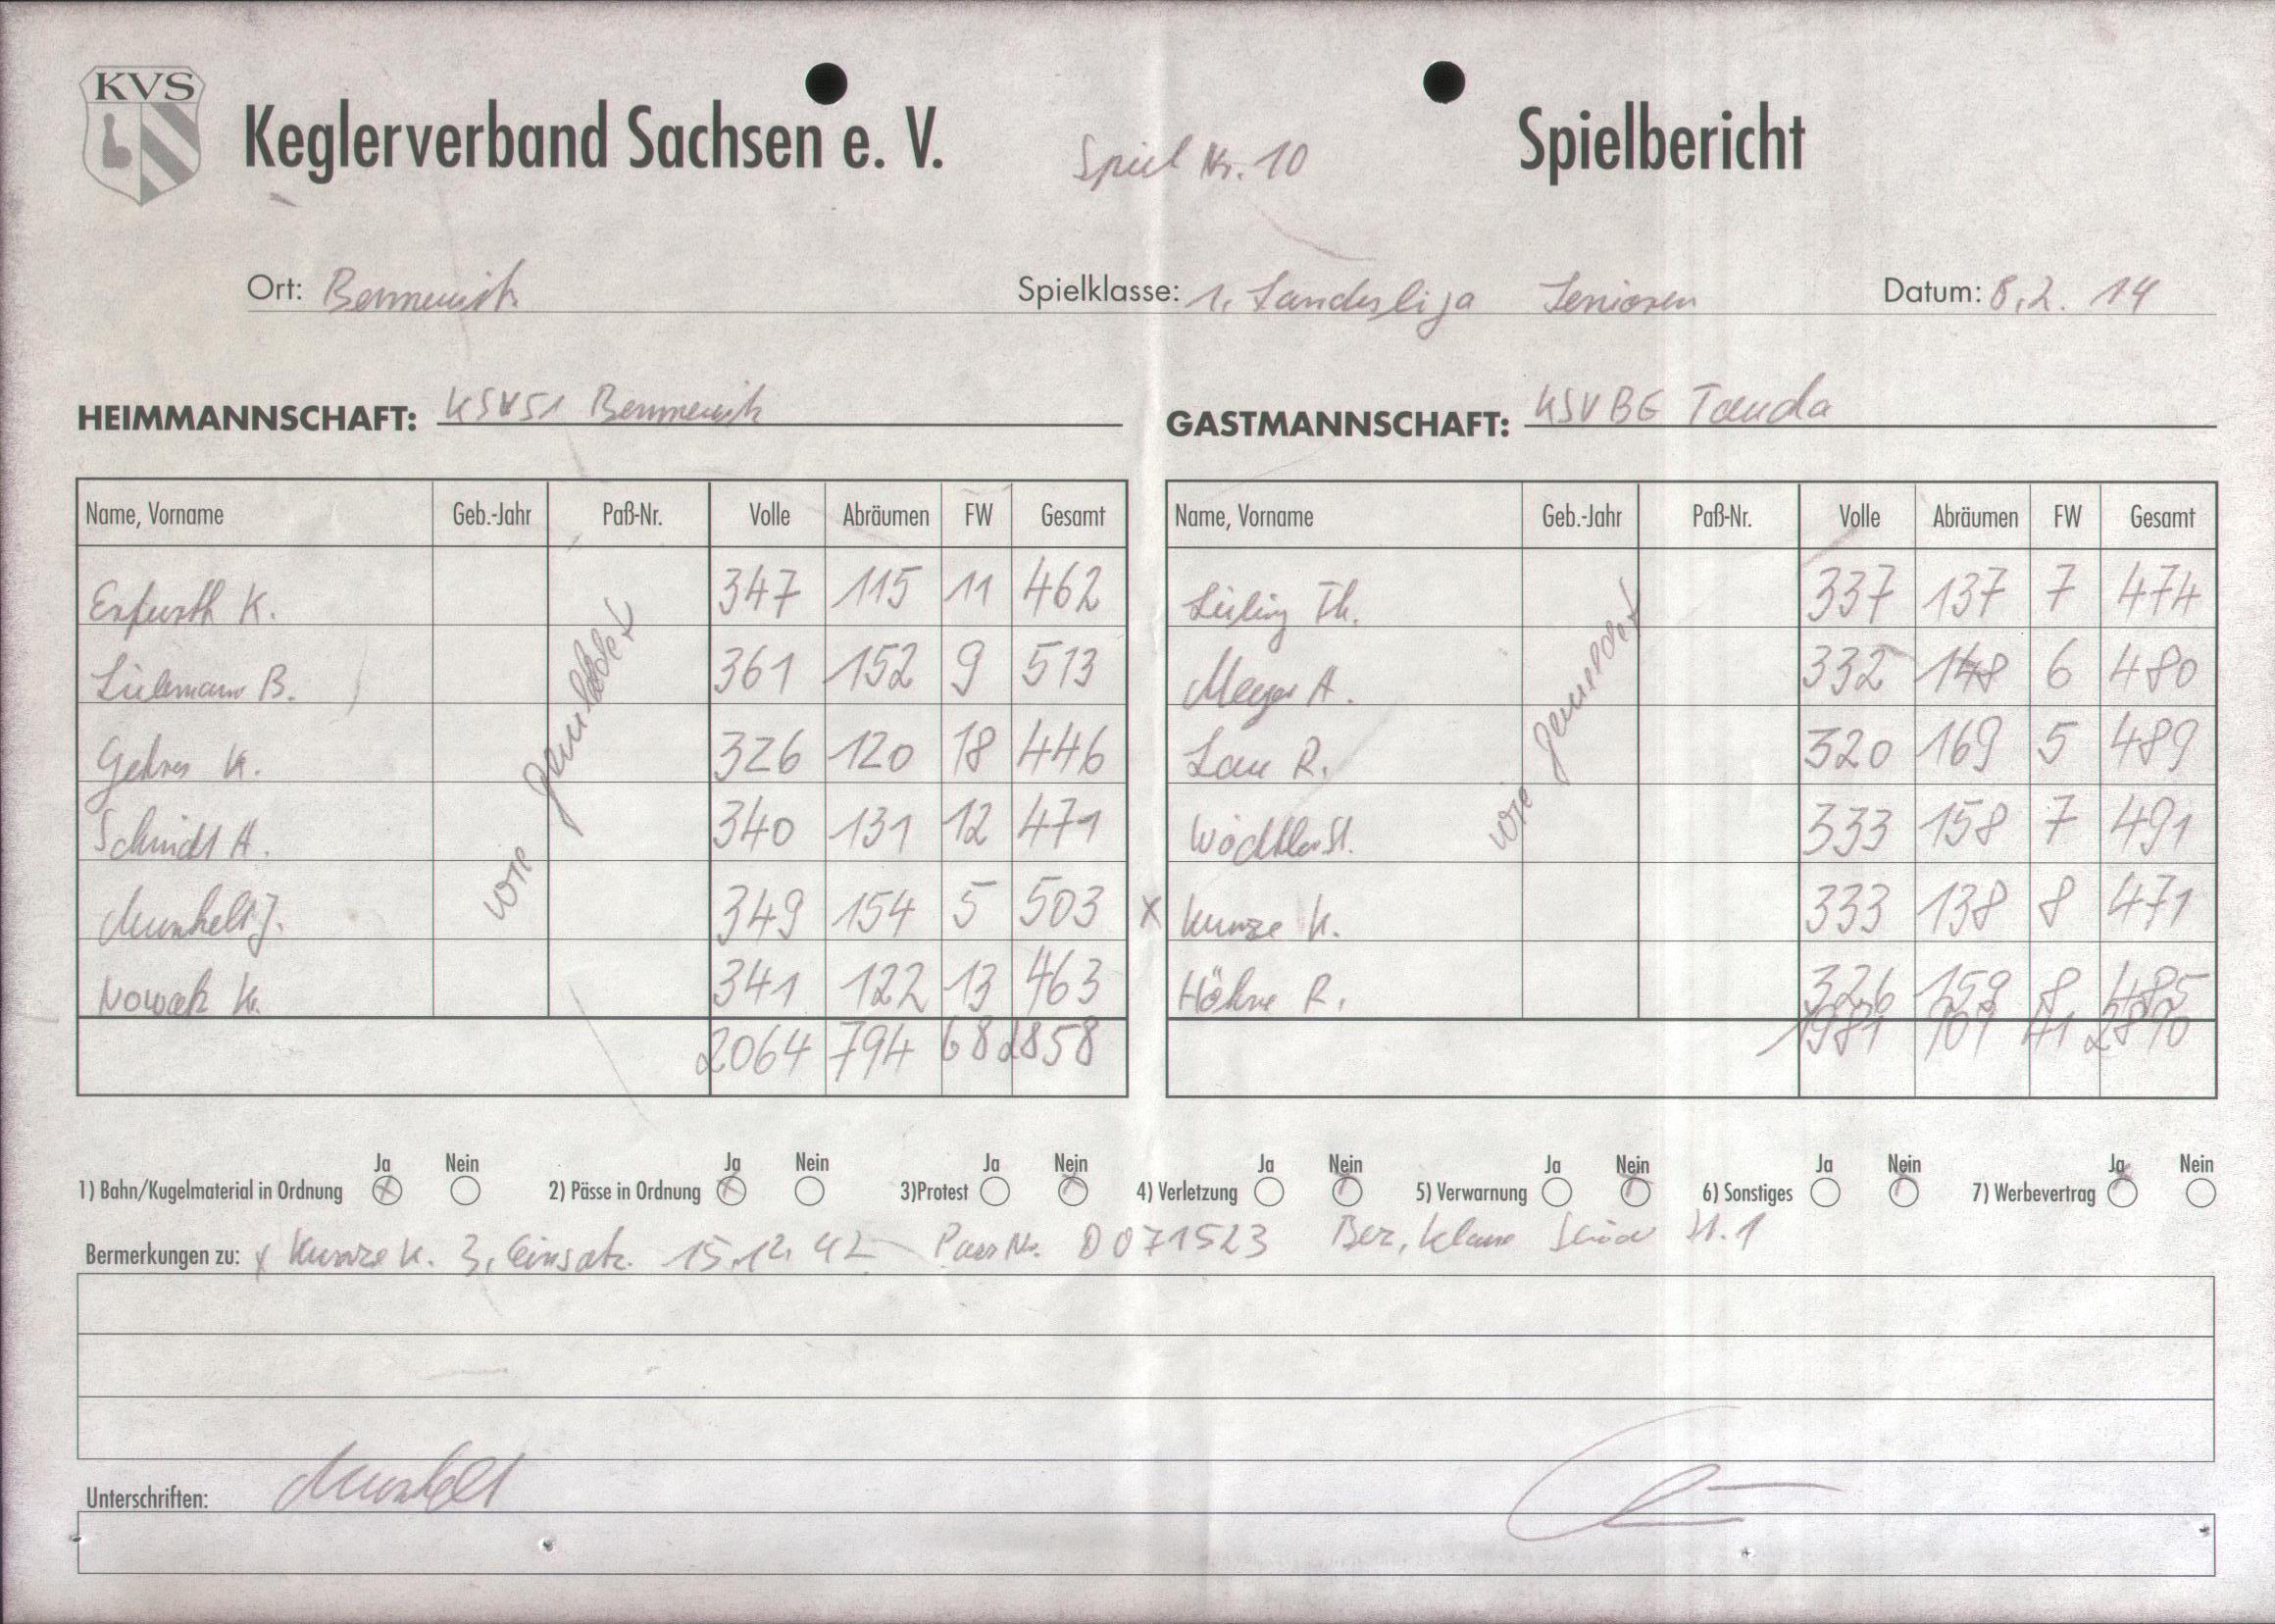 KVS
Keglerverband Sachsen e. V. Spiel Nr. 10 Spielbericht
Ort: Spielklasse: 1. Landesliga Senioren Datum: 8.2. 14
HEIMMANNSCHAFT: GASTMANNSCHAFT: KSV BG Taucha
Name, Vorname Geb.-Jahr Paß-Nr. Volle Abräumen FW Gesamt Name, Vorname Geb.-Jahr Paß-Nr. Volle Abräumen FW Gesamt
Erfurth K. 347 115 11 462 Th. 337 137 7 474
B. 361 152 9 513 Meyer A. 332 148 6 480
K. 326 120 18 446 Lau R. 320 169 5 489
Schmidt A. 340 131 12 471 333 158 7 491
Munkelt J. 349 154 5 503 x Kunze K. 333 138 8 471
Nowak K. 341 122 13 463 Höhne R. 326 159 8 485
2064 794 68 2858 1981 909 41 2890
wie gemeldet
wie gemeldet
1) Bahn/Kugelmaterial in Ordnung Ja Nein 2) Pässe in Ordnung Ja Nein 3)Protest Ja Nein 4) Verletzung Ja Nein 5) Verwarnung Ja Nein 6) Sonstiges Ja Nein 7) Werbevertrag Ja Nein
Bermerkungen zu: x Kunze K. 3. Einsatz 15.12.42 Pass Nr. 0071523
Unterschriften: Munkelt